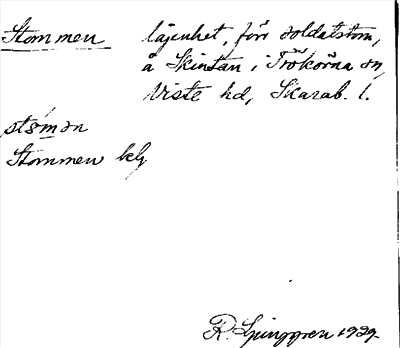 Stommen lägenhet, förr soldatstom,
å Skintan i Trökörna sn,
Viste hd, Skarab. l.
stǿmǝn
Stommen belg
R. Ljunggren 1929